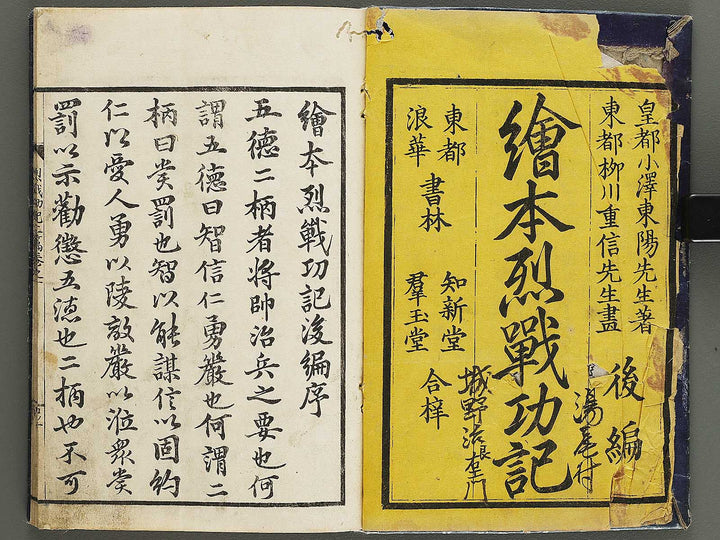 皇都小澤東陽先生著
東都柳川重信先生畫
後編
湯尾村
繪本烈戰功記
城野治良左衛門
東都
浪華
書林
知新堂
羣玉堂
合梓
繪本烈戰功記後編序
五德二柄者將帥治兵之要也何
謂五德曰智信仁勇嚴也何謂二
柄曰賞罰也智以能謀信以固約
仁以愛人勇以陵敵嚴以涖衆賞
罰以示勸懲五德也二柄也不可